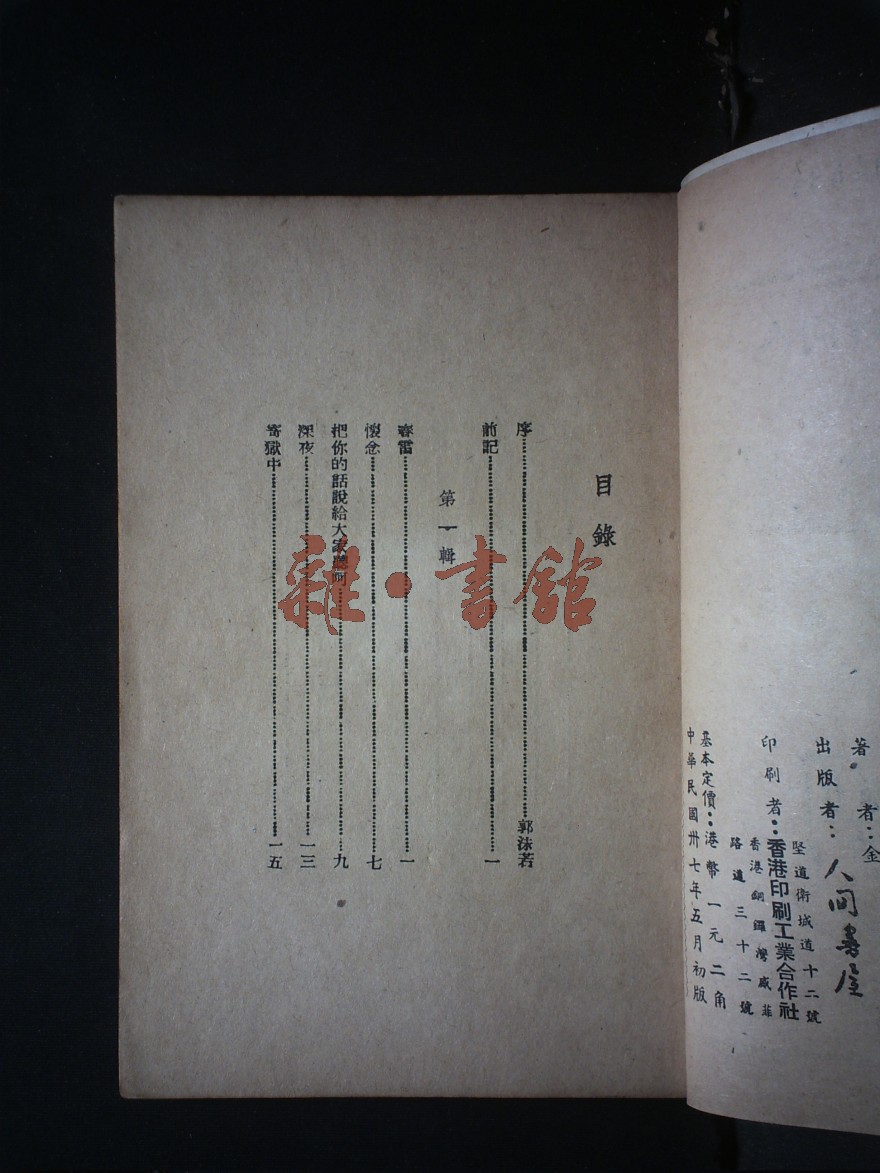 著者：金
出版者：人间書屋
堅道衛城道十二號
印刷者：香港印刷工業合作社
香港銅鑼灣威菲
路道三十二號
基本定價：港幣一元二角
中華民國卅七年五月初版
目錄
序……郭沫若
前記……一
第一輯
春雷……一
懷念……七
把你的話說給大家聽呵……九
深夜……一三
寄獄中……一五
雜·書館